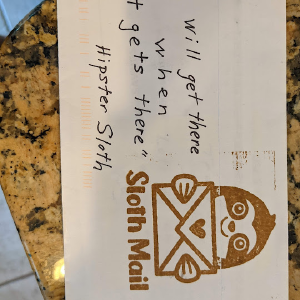 will get there
when
t gets there"
Hipster Sloth
Sloth Mail